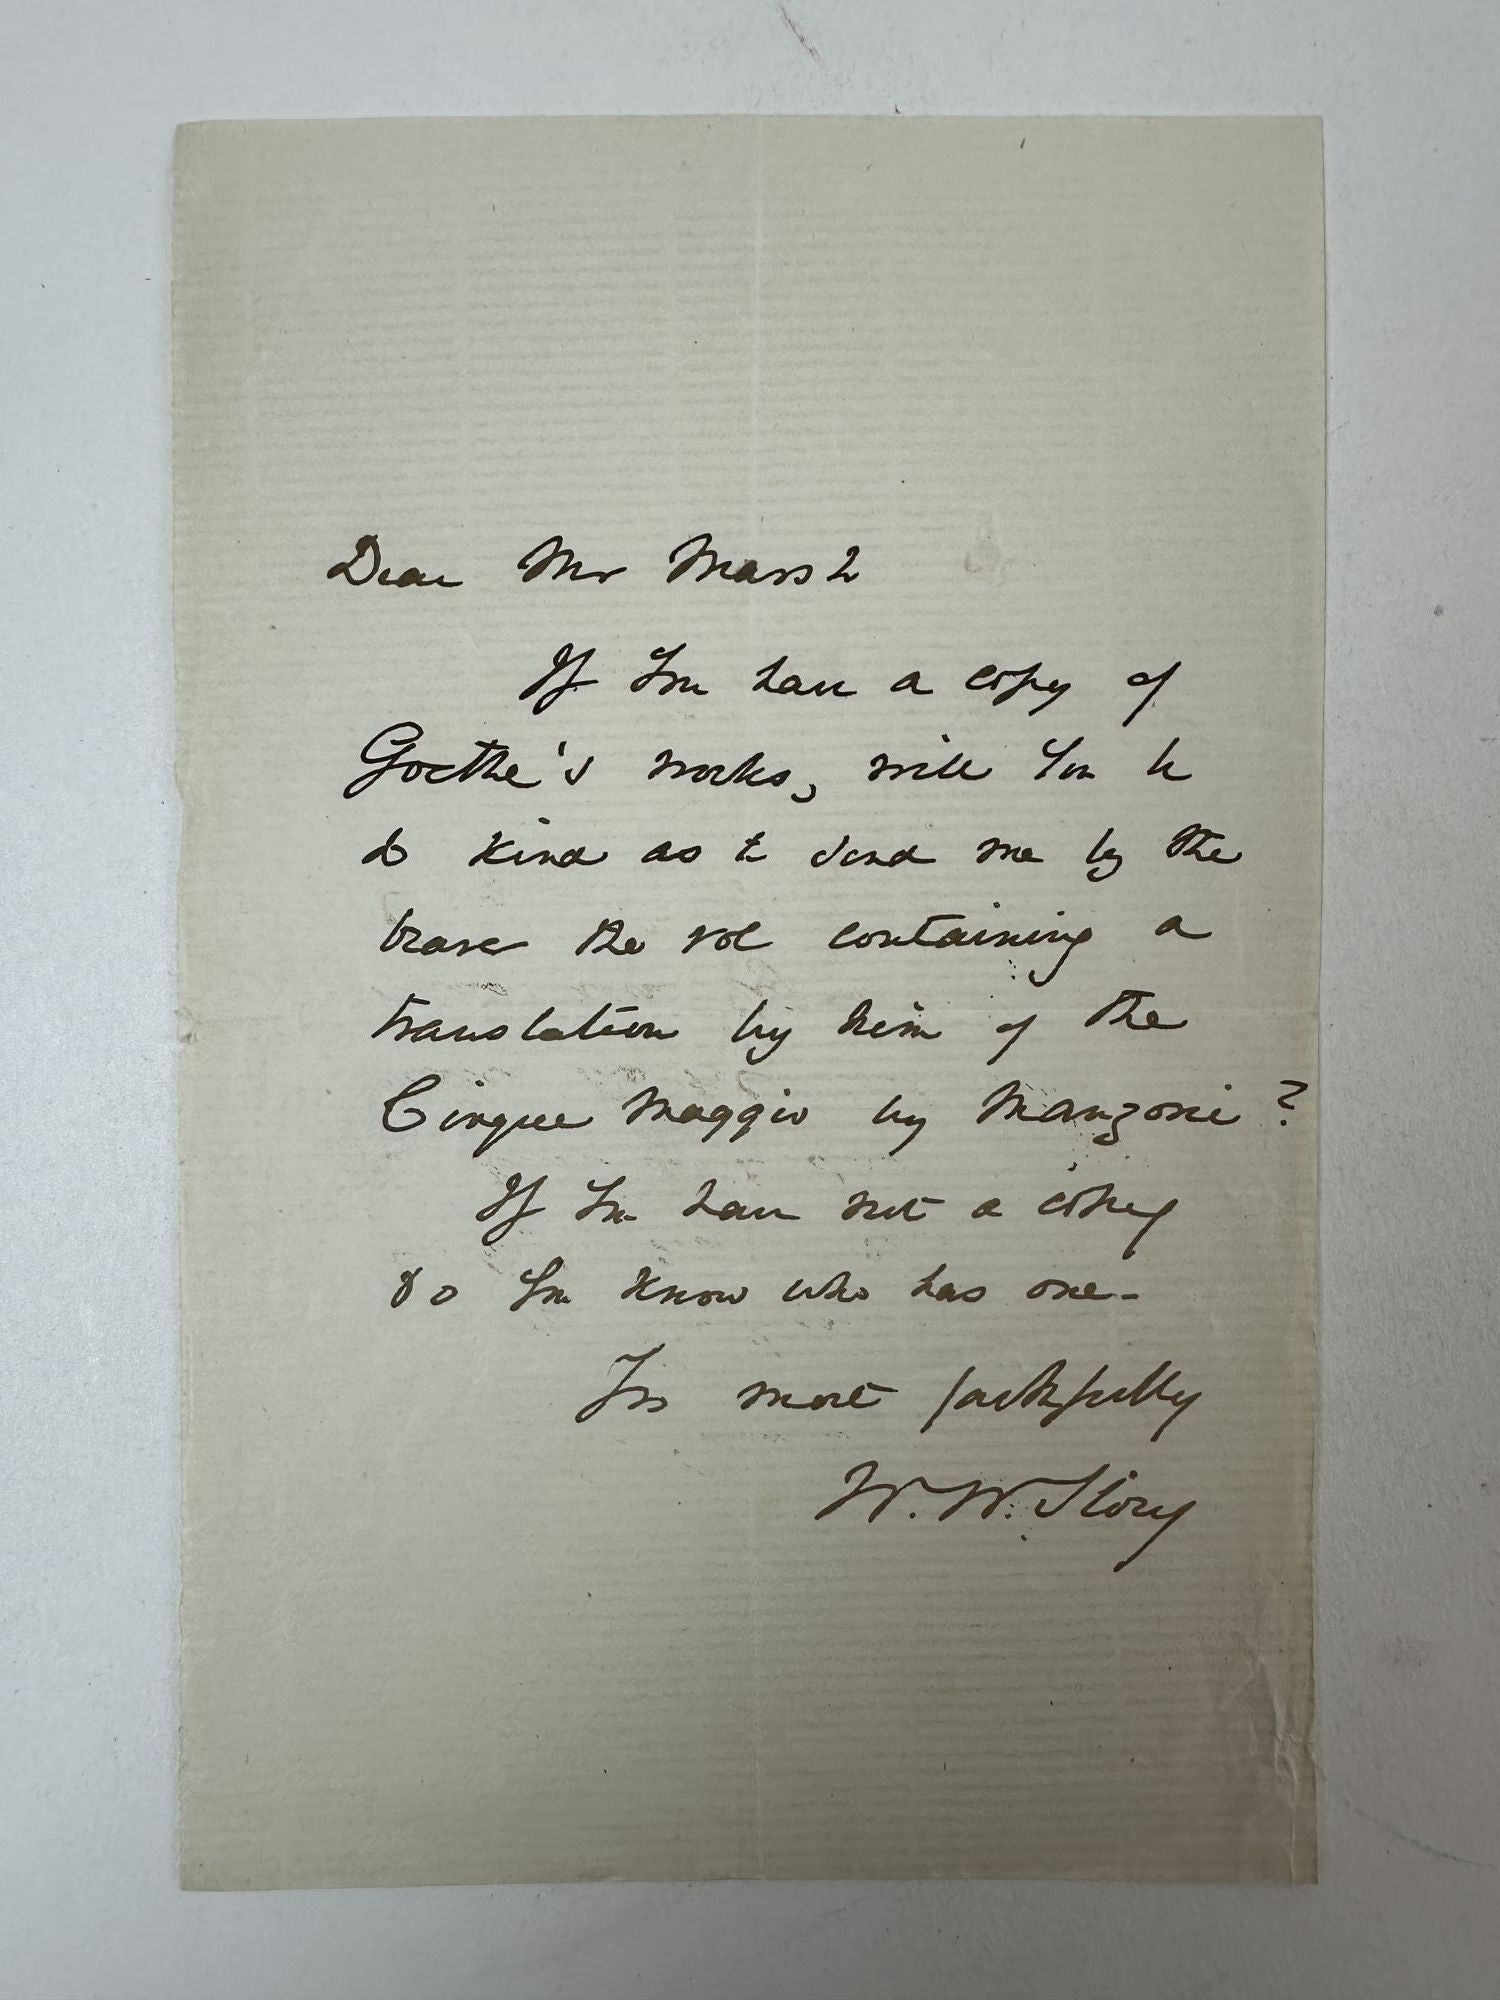 Dear Mr Marsh
If you have a copy of
Goethe's works, will you be
so kind as to send me by the
bearer the vol containing a
translation by him of the
Cinque Maggio by Manzoni?
If you have not a copy
do you know who has one -
Yrs most faithfully
W. W. Story